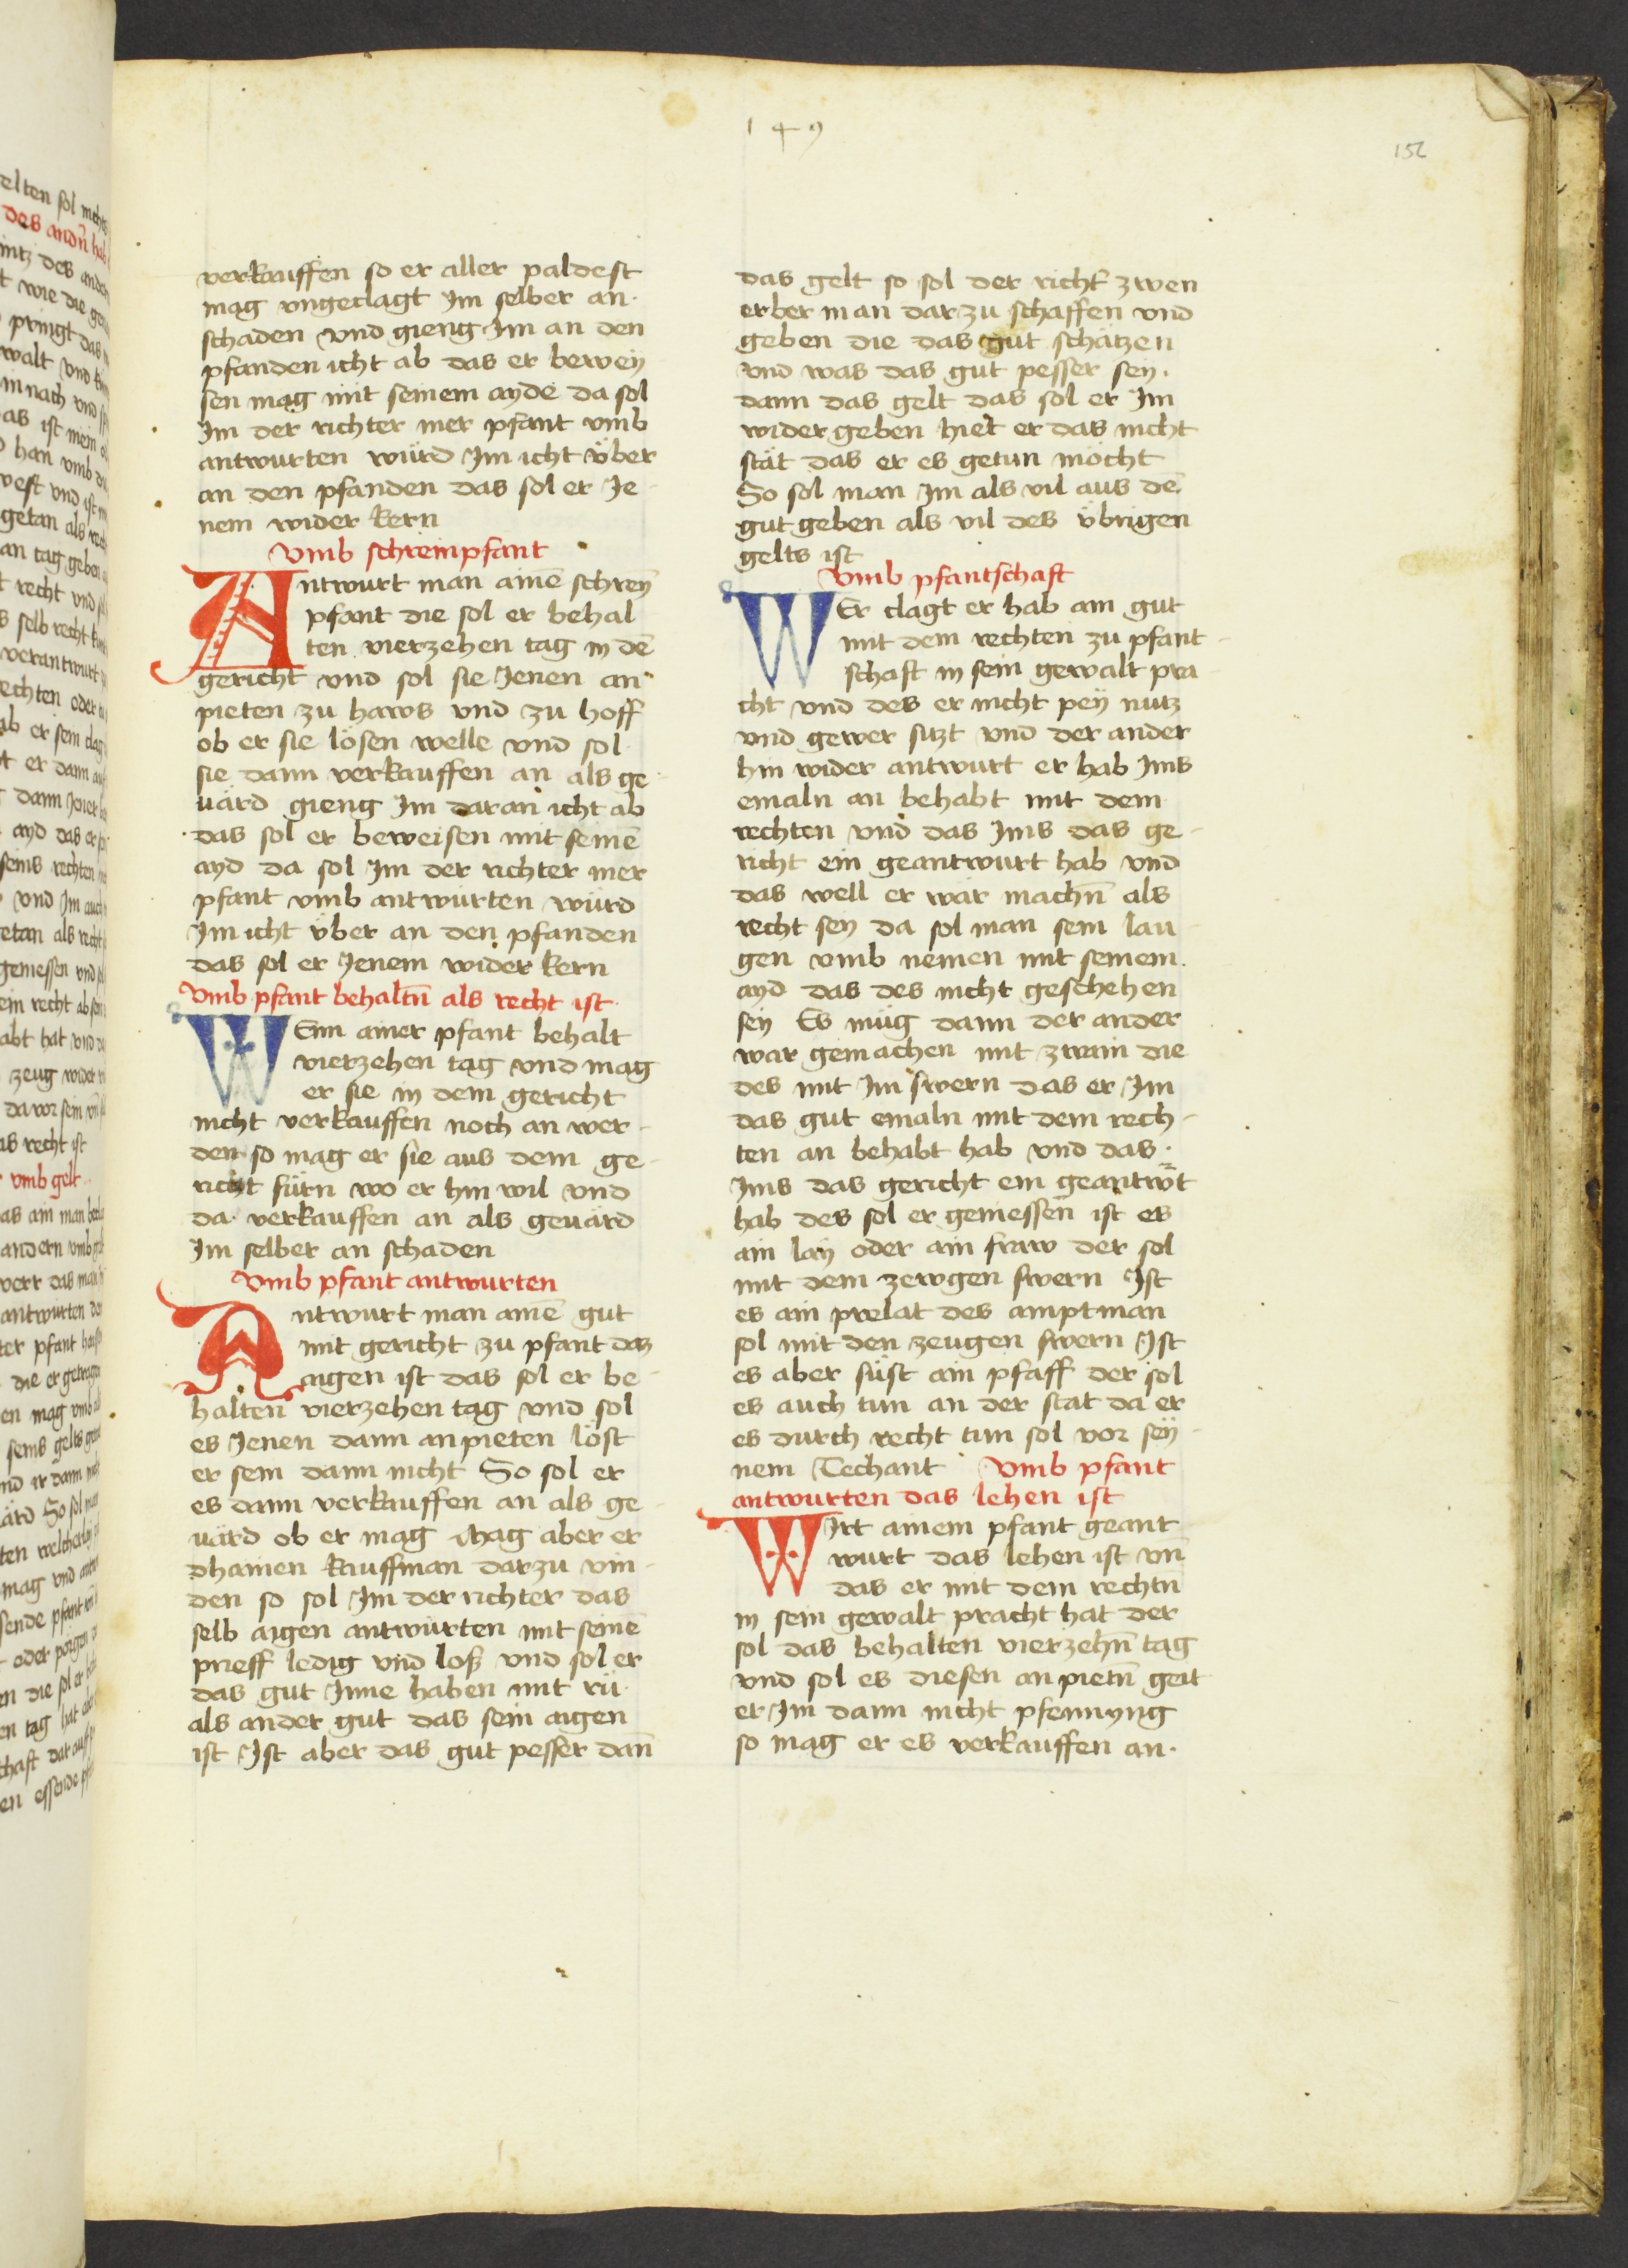 149
152
verkauffen so er aller paldest
mag vngeclagt Im selber an
schaden vnd gieng Im an den
pfanden icht ab das er bewey
sen mag mit seinem ayde da sol
Im der richter mer pfant vmb
antwurten würd Im icht über
an den pfanden das sol er Je
nem wider kern
Vmb schreinpfant
Antwurt man ainē schrein
pfant die sol er behal
ten vierzehen tag in dē
gericht vnd sol sie Jenen an
pieten zu haws vnd zu hoff
ob er sie lösen welle vnd sol
sie dann verkauffen an als ge
uärd gieng Im daran icht ab
das sol er beweisen mit seinē
ayd da sol Im der richter mer
pfant vmb antwurten würd
Im icht über an den pfanden
das sol er Jenem wider kern
Vmb pfant behaltñ als recht ist
WEnn ainer pfant behalt
vierzehen tag vnd mag
er sie in dem gericht
nicht verkauffen noch an wer
den so mag er sie aus dem ge
richt fürn wo er hin wil vnd
da verkauffen an als geuärd
Im selber an schaden
Vmb pfant antwurten
Antwurt man ainē gut
mit gericht zu pfant daz
aigen ist das sol er be
halten vierzehen tag vnd sol
es Jenen dann anpieten löst
er sein dann nicht So sol er
es dann verkauffen an als ge
uärd ob er mag Mag aber er
dhainen kauffman darzu vin
den so sol Im der richter das
selb aigen antwurten mit seinē
prieff ledig vnd loß vnd sol er
das gut Inne haben mit rü
als ander gut das sein aigen
ist Ist aber das gut pesser dañ
das gelt so sol der richt' zwen
erber man darzu schaffen vnd
geben die das gut schätzen
vnd was das gut pesser sey
dann das gelt das sol er Im
wider geben hiet er das nicht
stät das er es getun möcht
So sol man Im als vil aus dē
gut geben als vil des übrigen
gelts ist
Vmb pfantschaft
WEr clagt er hab ain gut
mit dem rechten zu pfant
schaft in sein gewalt pra
cht vnd des er nicht pey nutz
vnd gewer sitzt vnd der ander
hin wider antwurt er hab Ims
emaln an behabt mit dem
rechten vnd das Ims das ge
richt ein geantwurt hab vnd
das well er war machñ als
recht sey da sol man sein lau
gen vmb nemen mit seinem
ayd das des nicht geschehen
sey Es müg dann der ander
war gemachen mit zwain die
des mit Im swern das er Im
das gut emaln mit dem rech
ten an behabt hab vnd das
Ims das gericht ein geantw̄t
hab des sol er geniessen ist es
ain lay oder ain fraw der sol
mit dem zewgen swern Ist
es ain prelat des amptman
sol mit den zeugen swern Ist
es aber süst ain pfaff der sol
es auch tun an der stat da er
es durch recht tun sol vor sey
nem Techant Vmb pfant
antwurten das lehen ist
WIrt ainem pfant geant
wurt das lehen ist vñ
das er mit dem rechtñ
in sein gewalt pracht hat der
sol das behalten vierzehñ tag
vnd sol es diesen an pietñ geit
er Im dann nicht pfennyng
so mag er es verkauffen an